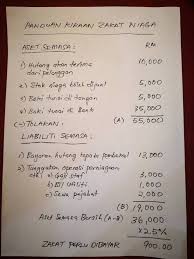 PANDUAN KIRAAN ZAKAT NIAGA
ASET SEMASA: RM
1) Hutang akan terima 10,000
dari pelanggan
2) Stok Niaga boleh dijual 5,000
3) Baki tunai di tangan 5,000
4) Baki tunai di Bank 35,000
(-) TOLAKAN: (A) 55,000
LIABILITI SEMASA:
1) Bayaran hutang kepada pembekal 13,000
2) Tunggakan operasi perniagaan
cth) a) Gaji staf 3,000
b) Bil Utiliti 1,000
c) Sewa pejabat 2,000
(B) 19,000
Aset Semasa Bersih (A-B) 36,000
x 2.5%
ZAKAT PERLU DIBAYAR 900.00